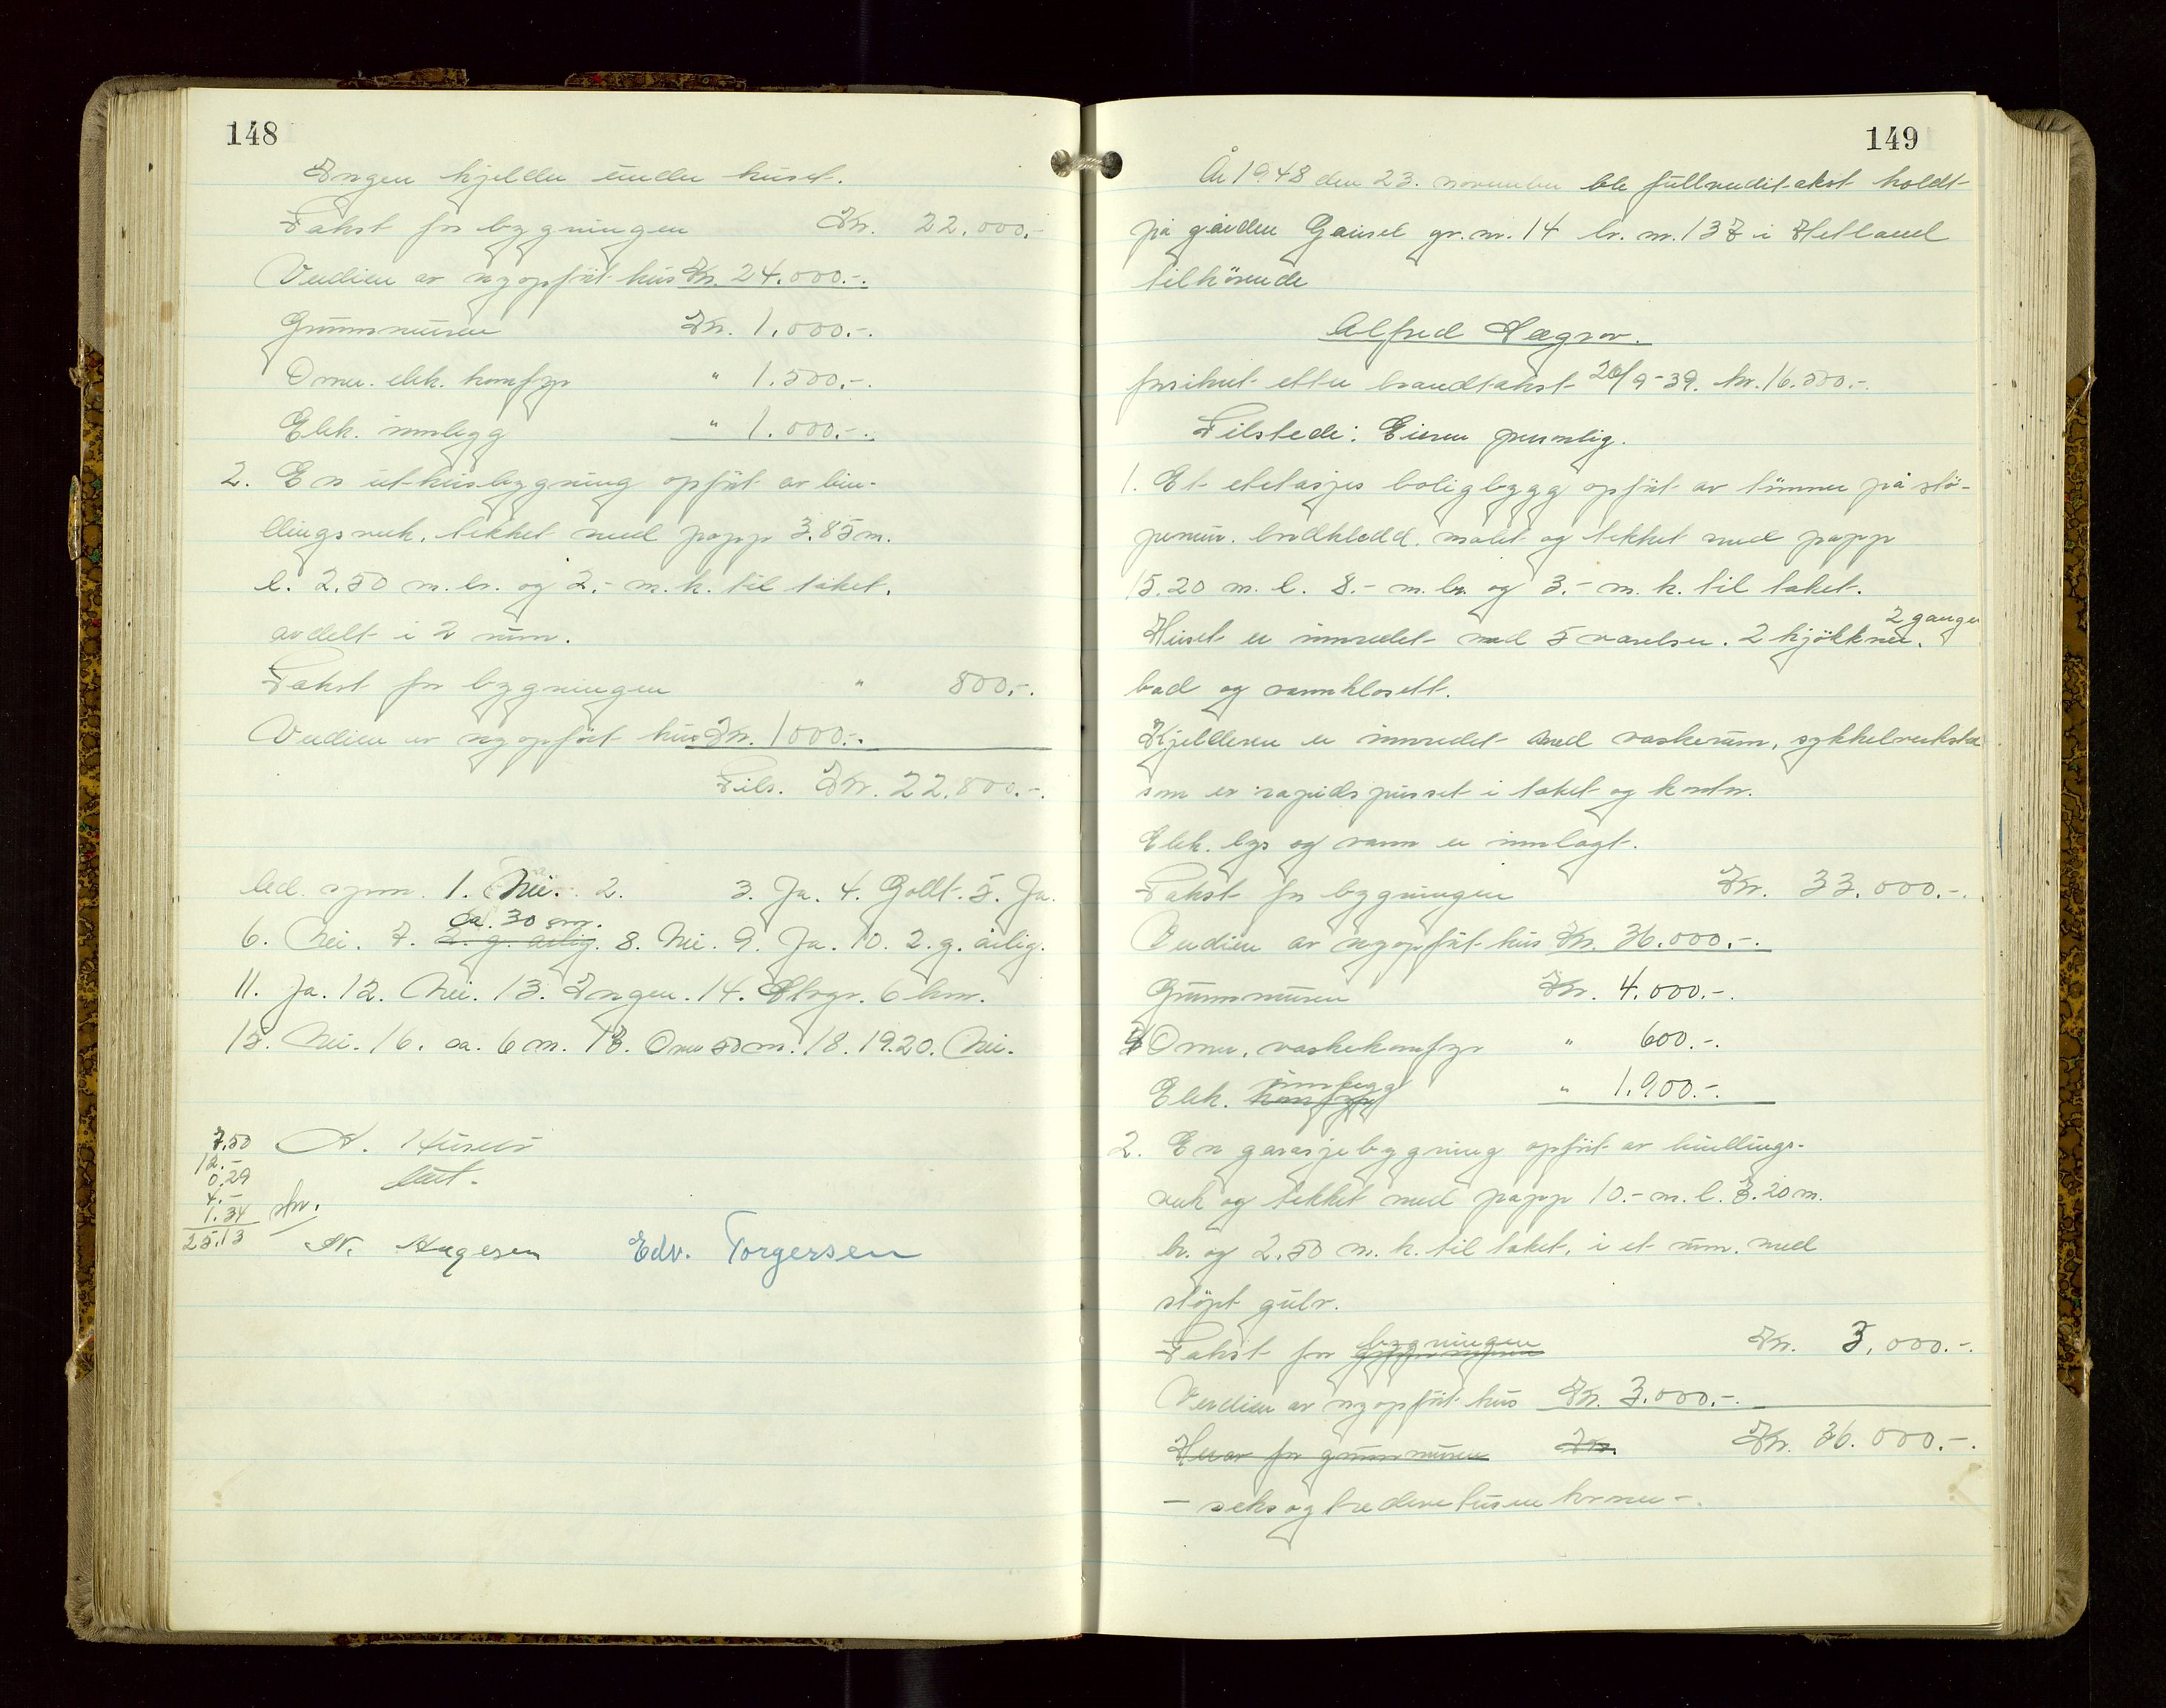 148
Ingen kjelder under huset.
Takst for bygningen Kr. 22.000.-
Verdien av nyopført hus Kr. 24.000.-.
Grunnmuren Kr. 1.000.-.
Omn. elek. komfyr " 1.500.-.
Elek. innlegg " 1.000.-.
2. En uthusbygning opført av bin-
dingsverk, tekket med papp 3.85 m.
l. 2.50 m. br. og 2.- m. h. til taket.
avdelt i 2 rum.
Takst for bygningen " 800.-.
Verdien av nyopført hus Kr. 1000.-.
Tils. Kr. 22.800.-.
Led. spm. 1. Nei. 2. 3. Ja. 4. Godt. 5. Ja.
ca. 30 cm.
6. Nei. 7. 2. g. årlig. 8. Nei. 9. Ja. 10. 2. g. årlig.
11. Ja. 12. Nei. 13. Ingen. 14. Stvgr. 6 km.
15. Nei. 16. ca. 6 m. 17. Over 50 m. 18. 19. 20. Nei.
7.50
12.-
0.29
4.-
1.34
25.13
skr.
N. Aagesen Edv. Torgersen
149
År 1948 den 23. november ble fullverditakst holdt
på gården Gausel gr. nr. 14 br. nr. 137 i Hetland
tilhørende
Alfred Hægrov.
forsikret etter brandtakst 26/9-39. kr. 16.500.-.
Tilstede: Eieren personlig.
1. Et etetasjes boligbygg opført av tømmer på stø-
pemur. bordkledd. malet og tekket med papp
15.20 m. l. 8.- m. br. og 3.- m. h. til taket.
2 ganger
Huset er innredet med 5 værelser. 2 kjøkkner.
bad og vannklosett.
Kjelderen er innredet med vaskerum, sykkelverksted
som er rapidspusset i taket og kontor.
Elek. lys og vann er innlagt.
Takst for bygningen Kr. 33.000.-.
Verdien av nyopført hus Kr. 36.000.-.
Grunnmuren Kr. 4.000.-.
Omn. vaskekomfyr " 600.-.
innlegg
Elek. komfyr " 1.900.-.
2. En garasjebygning opført av bindings-
verk og tekket med papp 10.- m. l. 3.20 m.
br. og 2.50 m. h. til taket, i et rum. med
støpt gulv.
bygningen
Takst for grunnmuren Kr. 3.000.-.
Verdien av nyopført hus Kr. 3.000.-.
Herav for grunnmuren Kr. Kr. 36.000.-.
- seksogtredevetusen kroner -.